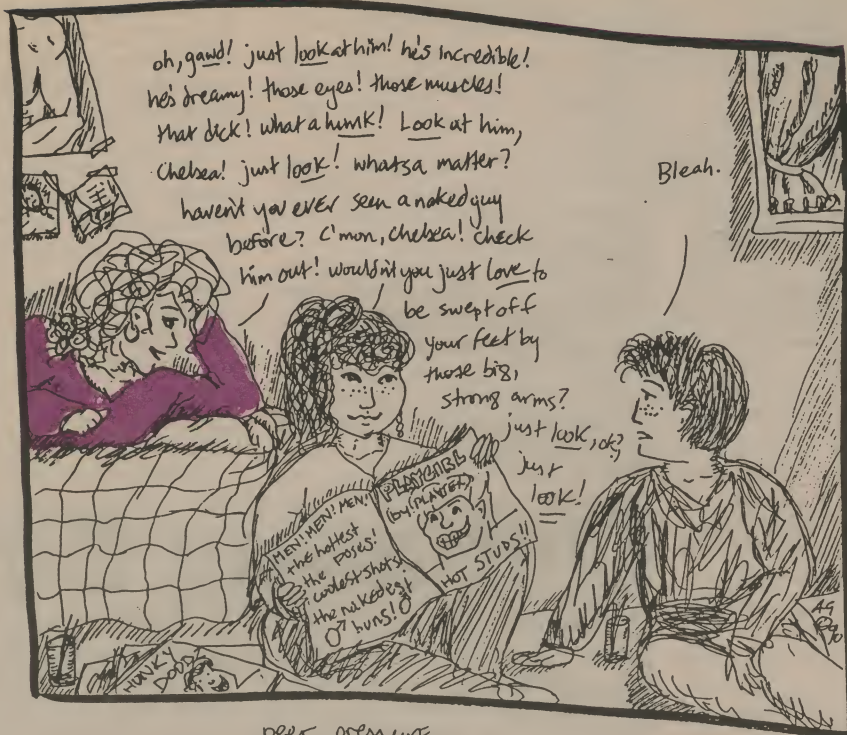 oh, gawd! just look at him! he's incredible!
he's dreamy! those eyes! those muscles!
that dick! what a hunk! Look at him,
Chelsea! just look! whatsa matter?
haven't you ever seen a naked guy
before? C'mon, Chelsea! check
him out! wouldn't you just love to
be swept off
your feet by
those big,
strong arms?
just look, ok?
just
look!
Bleah.
MEN! MEN! MEN!
the hottest
poses!
the
coolest shots!
the nakedest
♂ huns! ♂
PLAYGIRL
HOT STUDS!!
HUNKY
DOOD
AG
peer pressure